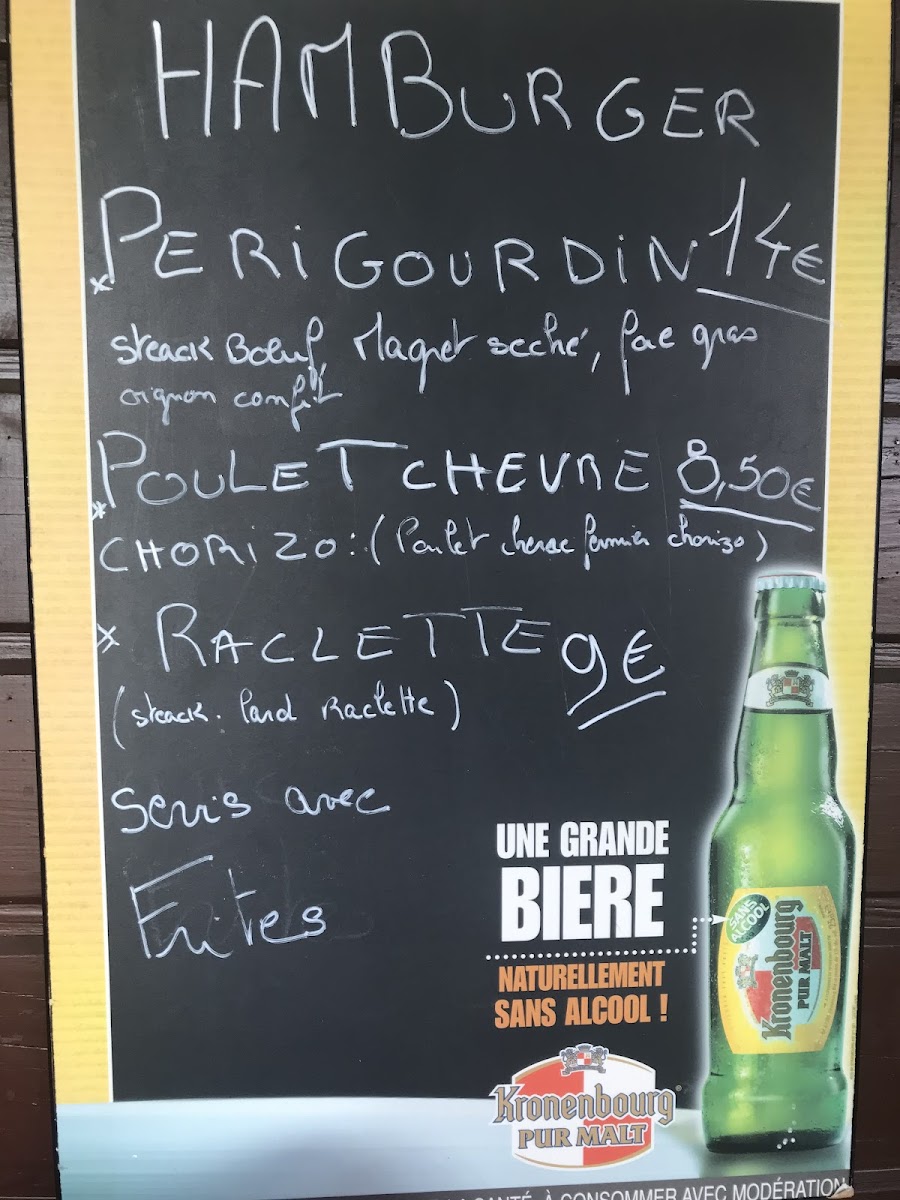 HAMBURGER
* PERIGOURDIN 14€
steack Bœuf, Magret seché, foie gras
oignon confit
* POULET CHEVRE 8,50€
CHORIZO : (Poulet chevre fermier chorizo)
x RACLETTE 9€
(steack. lard Raclette)
Servis avec
Frites
UNE GRANDE
BIERE
NATURELLEMENT
SANS ALCOOL !
SANS
ALCOOL
Kronenbourg
PUR MALT
Kronenbourg
PUR MALT
SANTÉ, À CONSOMMER AVEC MODÉRATION